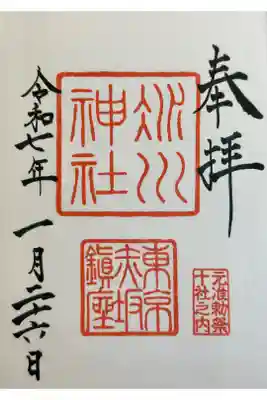 奉拝
氷川
神社
東京
赤坂
鎮座
元准勅祭
十社之内
令和七年 一月二十六日